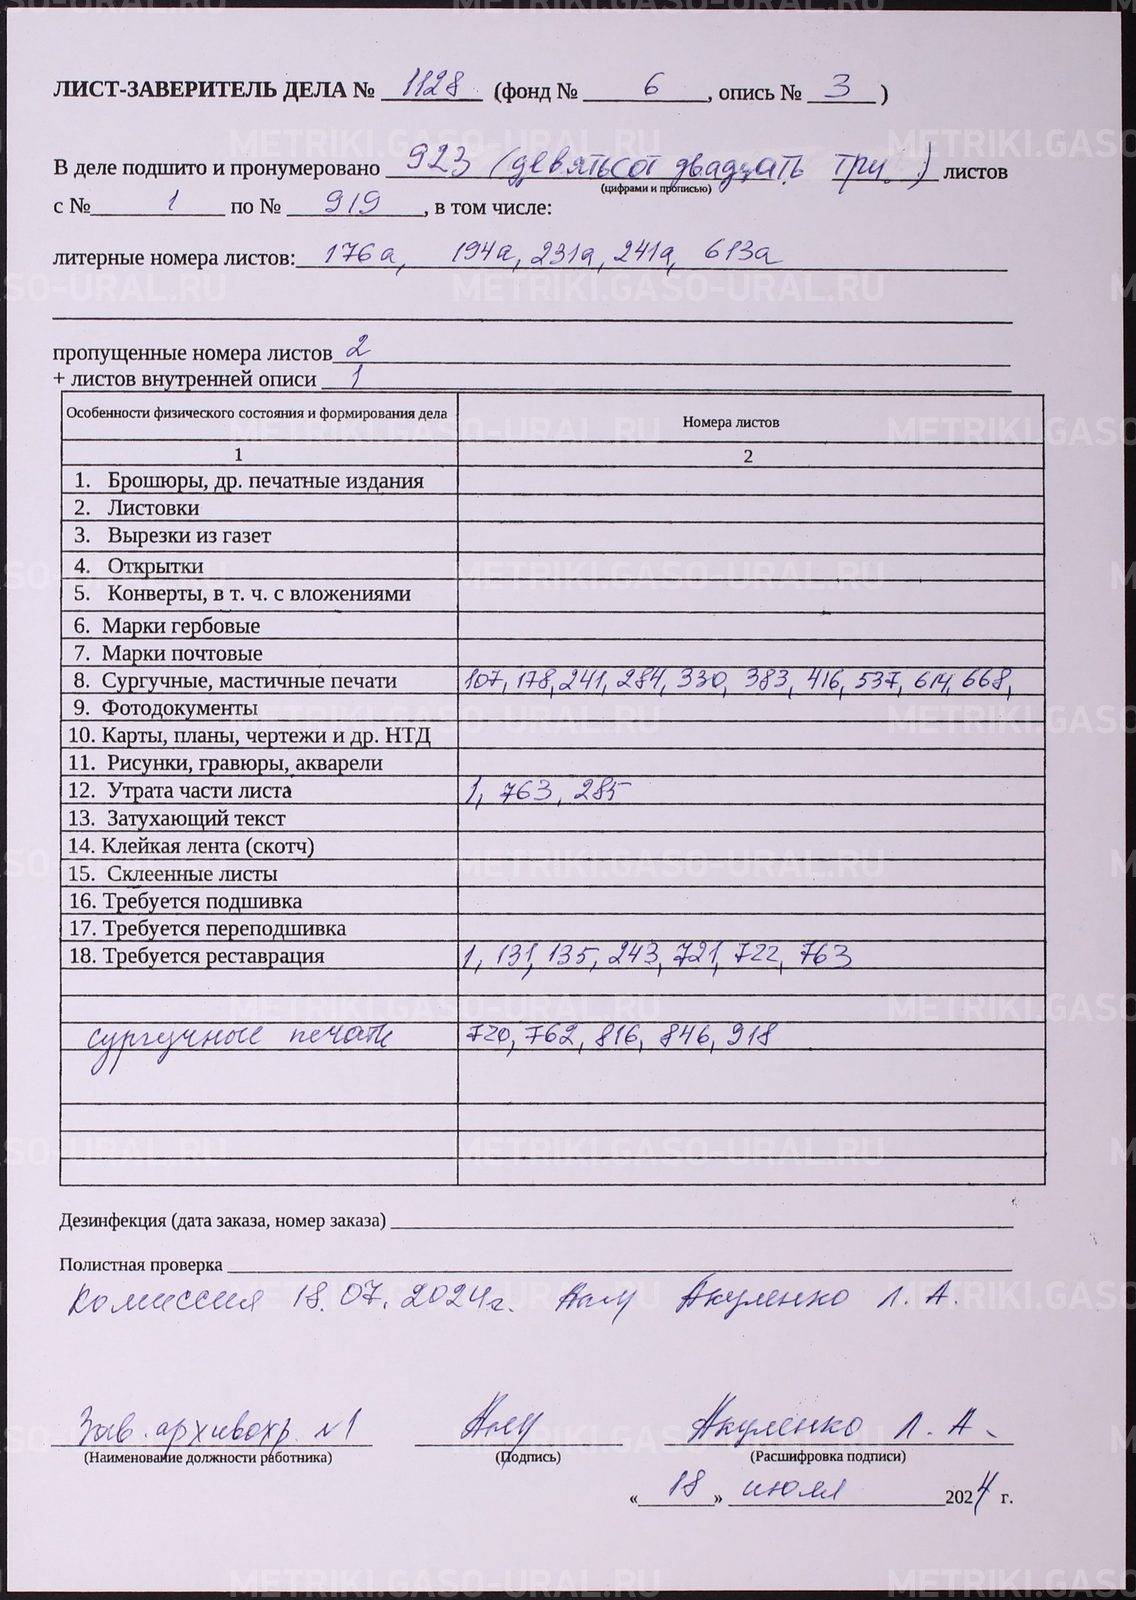 ЛИСТ-ЗАВЕРИТЕЛЬ ДЕЛА № 1128 (фонд № 6, опись № 3)
В деле подшито и пронумеровано 923 (девятьсот двадцать три) листов
(цифрами и прописью)
с № 1 по № 919, в том числе:
литерные номера листов: 176а, 194а, 231а, 241а, 613а
пропущенные номера листов 2
+ листов внутренней описи 1
Особенности физического состояния и формирования дела Номера листов
1 2
1. Брошюры, др. печатные издания
2. Листовки
3. Вырезки из газет
4. Открытки
5. Конверты, в т. ч. с вложениями
6. Марки гербовые
7. Марки почтовые
8. Сургучные, мастичные печати 107, 178, 241, 284, 330, 383, 416, 537, 614, 668,
9. Фотодокументы
10. Карты, планы, чертежи и др. НТД
11. Рисунки, гравюры, акварели
12. Утрата части листа 1, 763, 285
13. Затухающий текст
14. Клейкая лента (скотч)
15. Склеенные листы
16. Требуется подшивка
17. Требуется переподшивка
18. Требуется реставрация 1, 131, 135, 243, 721, 722, 763
сургучные печати 720, 762, 816, 846, 918
Дезинфекция (дата заказа, номер заказа)
Полистная проверка
Комиссия 18.07.2024г. Акуленко Л. А.
Зав. архивохр. №1 Акуленко Л. А.
(Наименование должности работника) (Подпись) (Расшифровка подписи)
«18» июля 2024 г.
METRIKI.GASO-URAL.RU